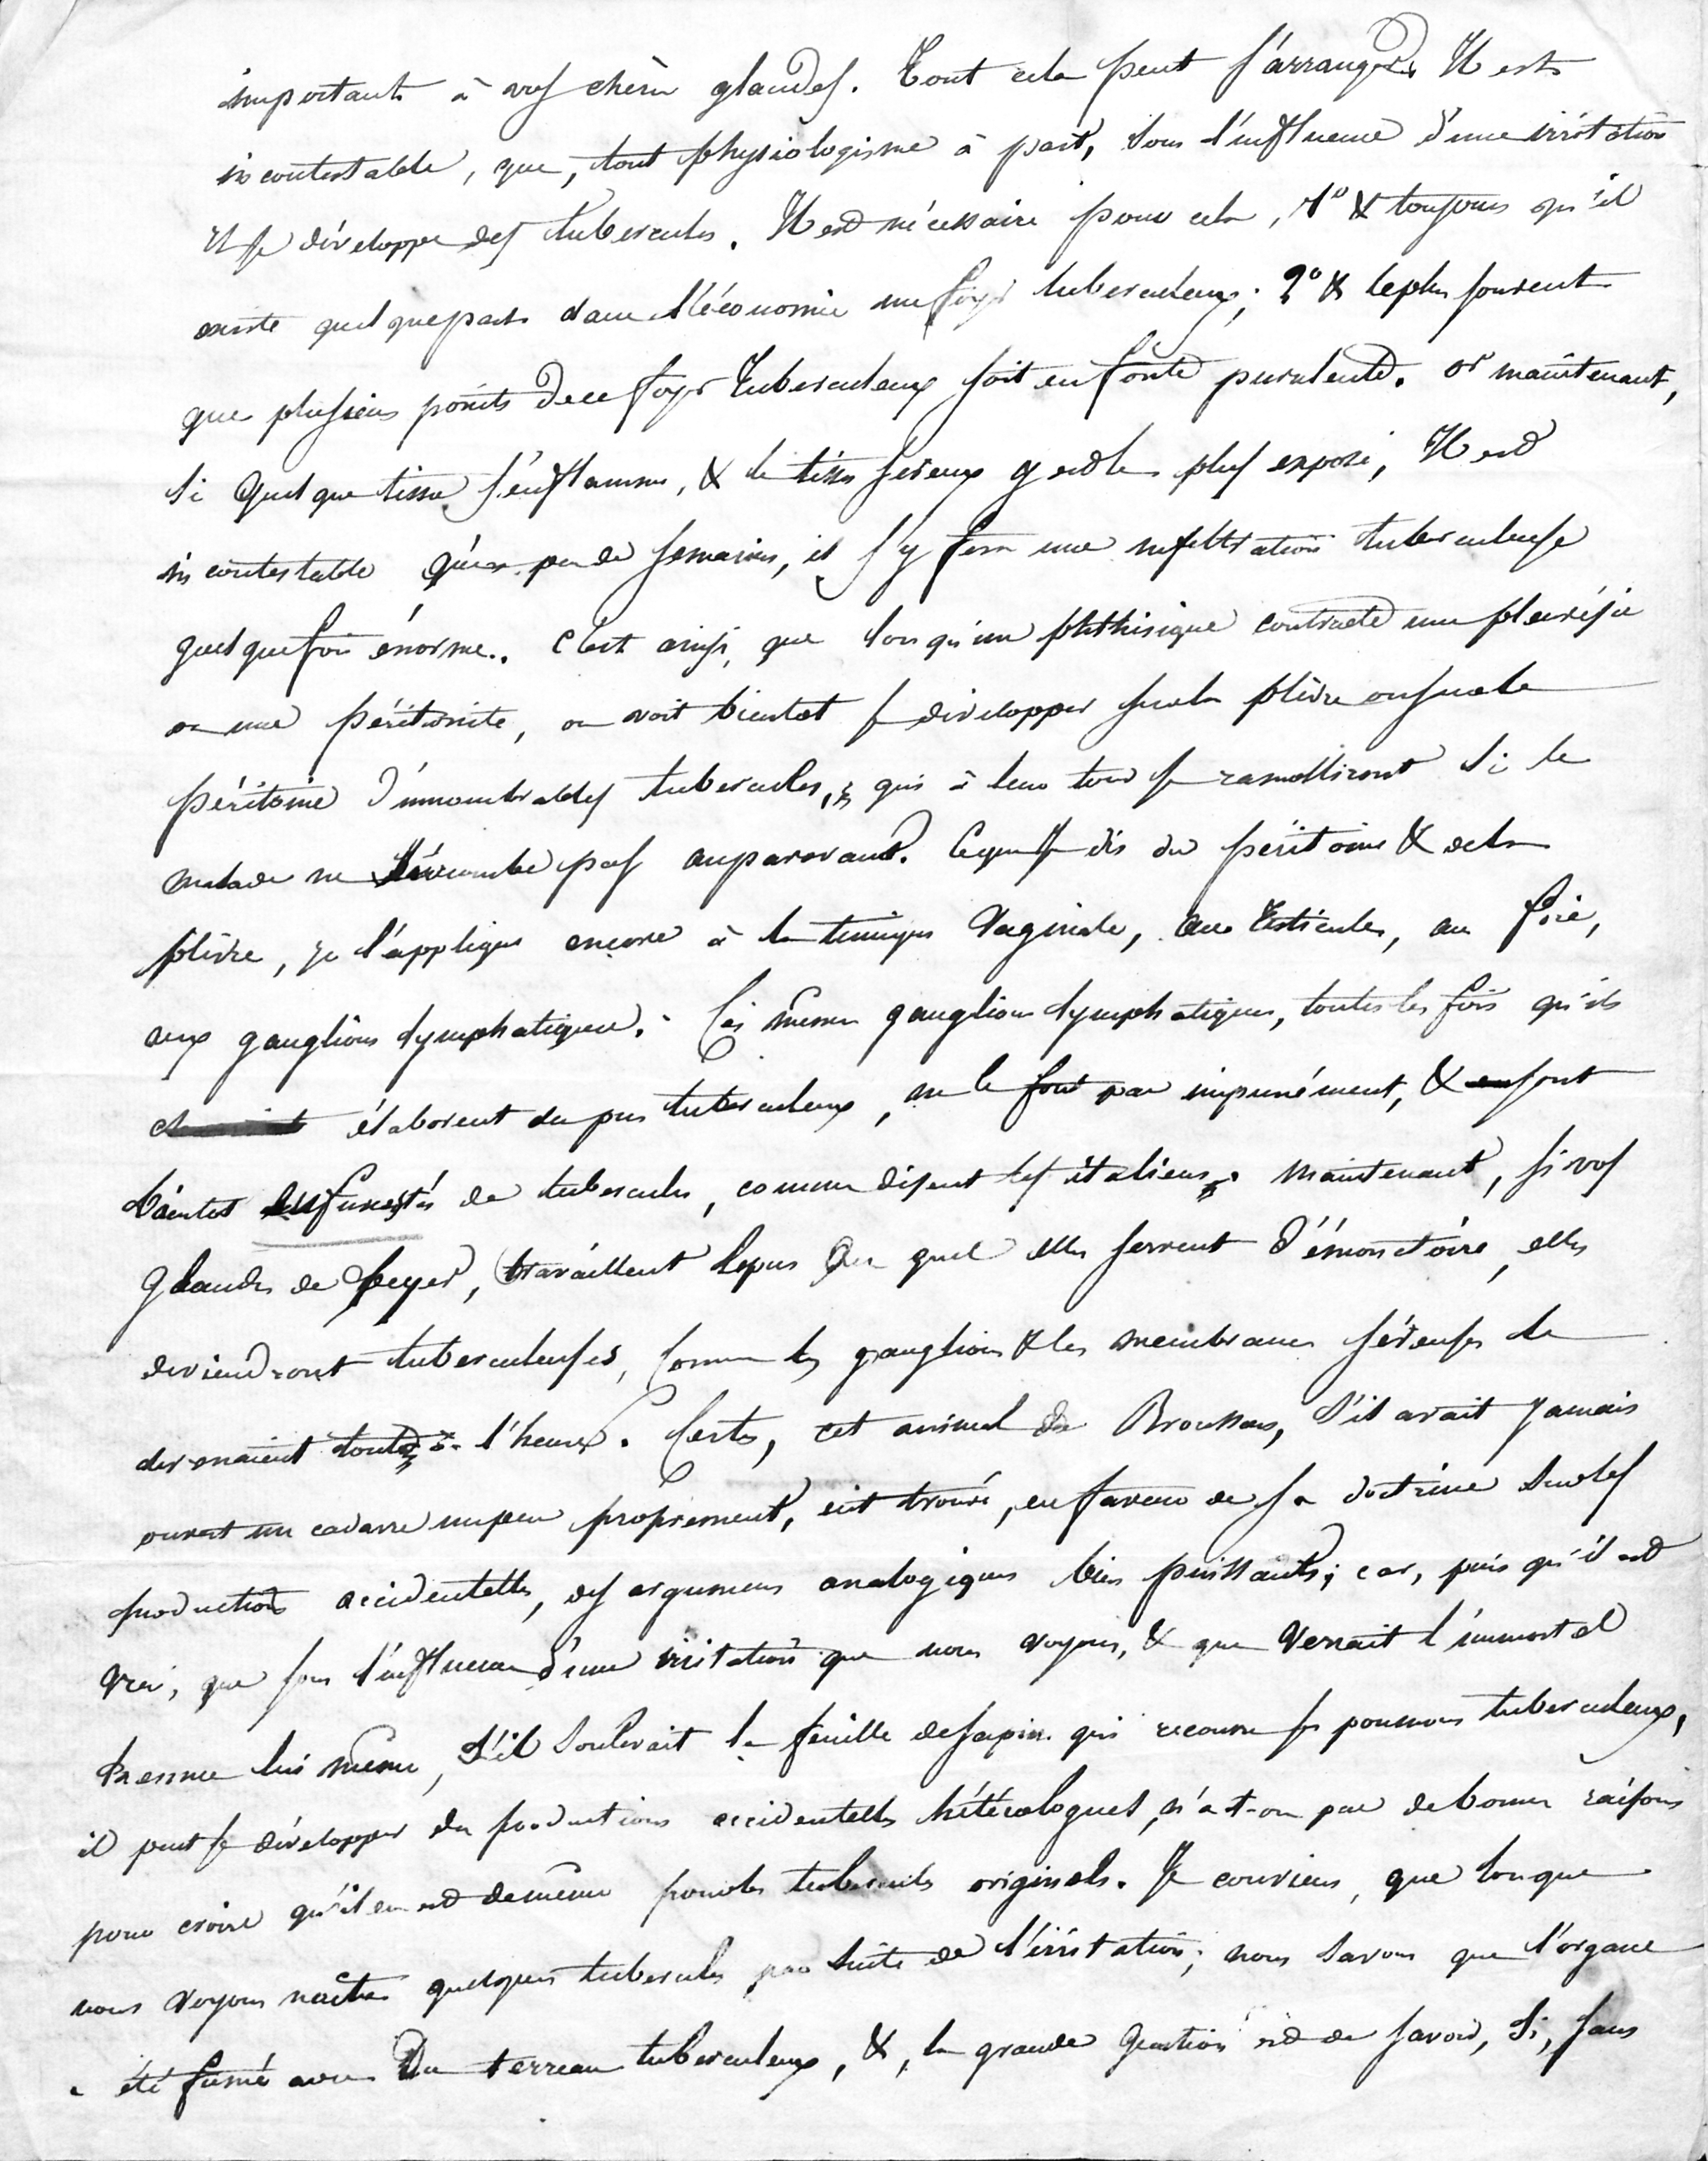 important à vos chères glandes. Tout cela peut s'arranger. Il est
incontestable, que, tout physiologisme à part, sous l'influence d'une irritation
Il se développe des tubercules. Il est nécessaire pour cela, 1° & toujours qu'il
existe quelque part dans l'économie un foyer tuberculeux; 2° & le plus souvent
que plusieurs points de ce foyer Tuberculeux soit en fonte purulente. or maintenant,
Si quelque tissu s'enflamme, & le tissu séreux y est le plus exposé, Il est
incontestable qu'en peu de semaines, il s'y fera une infiltration tuberculeuse
quelquefois énorme. C'est ainsi, que lorsqu'un phthisique contracte une pleurésie
ou une péritonite, on voit bientôt se développer sur la plèvre ou sur le
péritoine d'innombrables tubercules, qui à leur tour se ramolliront si le
malade ne succombe pas auparavant. Ce que je dis du péritoine & de la
plèvre, je l'applique encore à la tunique Vaginale, aux testicules, au foie,
aux ganglions lymphatiques. Ces mêmes ganglions lymphatiques, toutes les fois qu'ils
élaborent du pus tuberculeux, ne le font pas impunément, & sont
bientôt infunestés de tubercules, comme disent les italiens. Maintenant, si vos
Glandes de Peyer, travaillent le pus du quel elles servent d'émonctoire, elles
deviendront tuberculeuses, comme les ganglions & les membranes séreuses le
devenaient tout à l'heure. Certes, cet animal de Broussais, s'il avait jamais
ouvert un cadavre un peu proprement, eût trouvé, en faveur de sa doctrine sur les
productions accidentelles, des argumens analogiques bien puissants; car, puis qu'il est
vrai, que sous l'influence d'une irritation que nous voyons, & que verrait l'immortel
Laennec lui même, s'il soulevait la feuille de sapin qui recouvre ses poumons tuberculeux,
il peut se développer des productions accidentelles hétérologues, n'a-t-on pas de bonnes raisons
pour croire qu'il en est de même pour les tubercules originels. Je conviens, que lorsque
nous voyons naître quelques tubercules par suite de l'irritation; nous savons que l'organe
a été fumé avec Du terreau tuberculeux, &, la grande Question est de savoir, Si, sans